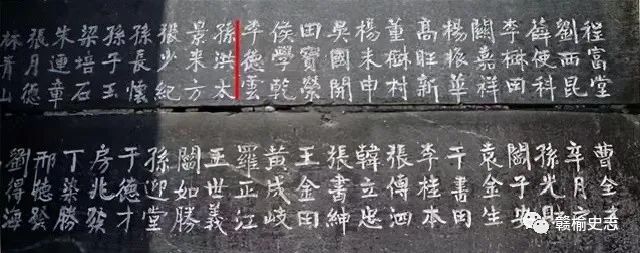 程富堂
劉西昆
薛使科
李樹田
闞嘉祥
楊振華
高旺新
董樹村
楊未申
吳國開
田寶榮
侯學乾
李德雲
孫洪太
景來方
張少紀
孫長懷
孫子玉
梁培石
朱連章
張月德
林青山
曹全才
辛月方
孫光
闞子
袁金生
于書田
李桂本
張傳泗
韓立忠
張書紳
王金田
黃成岐
羅正江
王世義
闞如勝
孫迎堂
于德才
房兆發
丁榮勝
邢德發
劉得海
赣榆史志